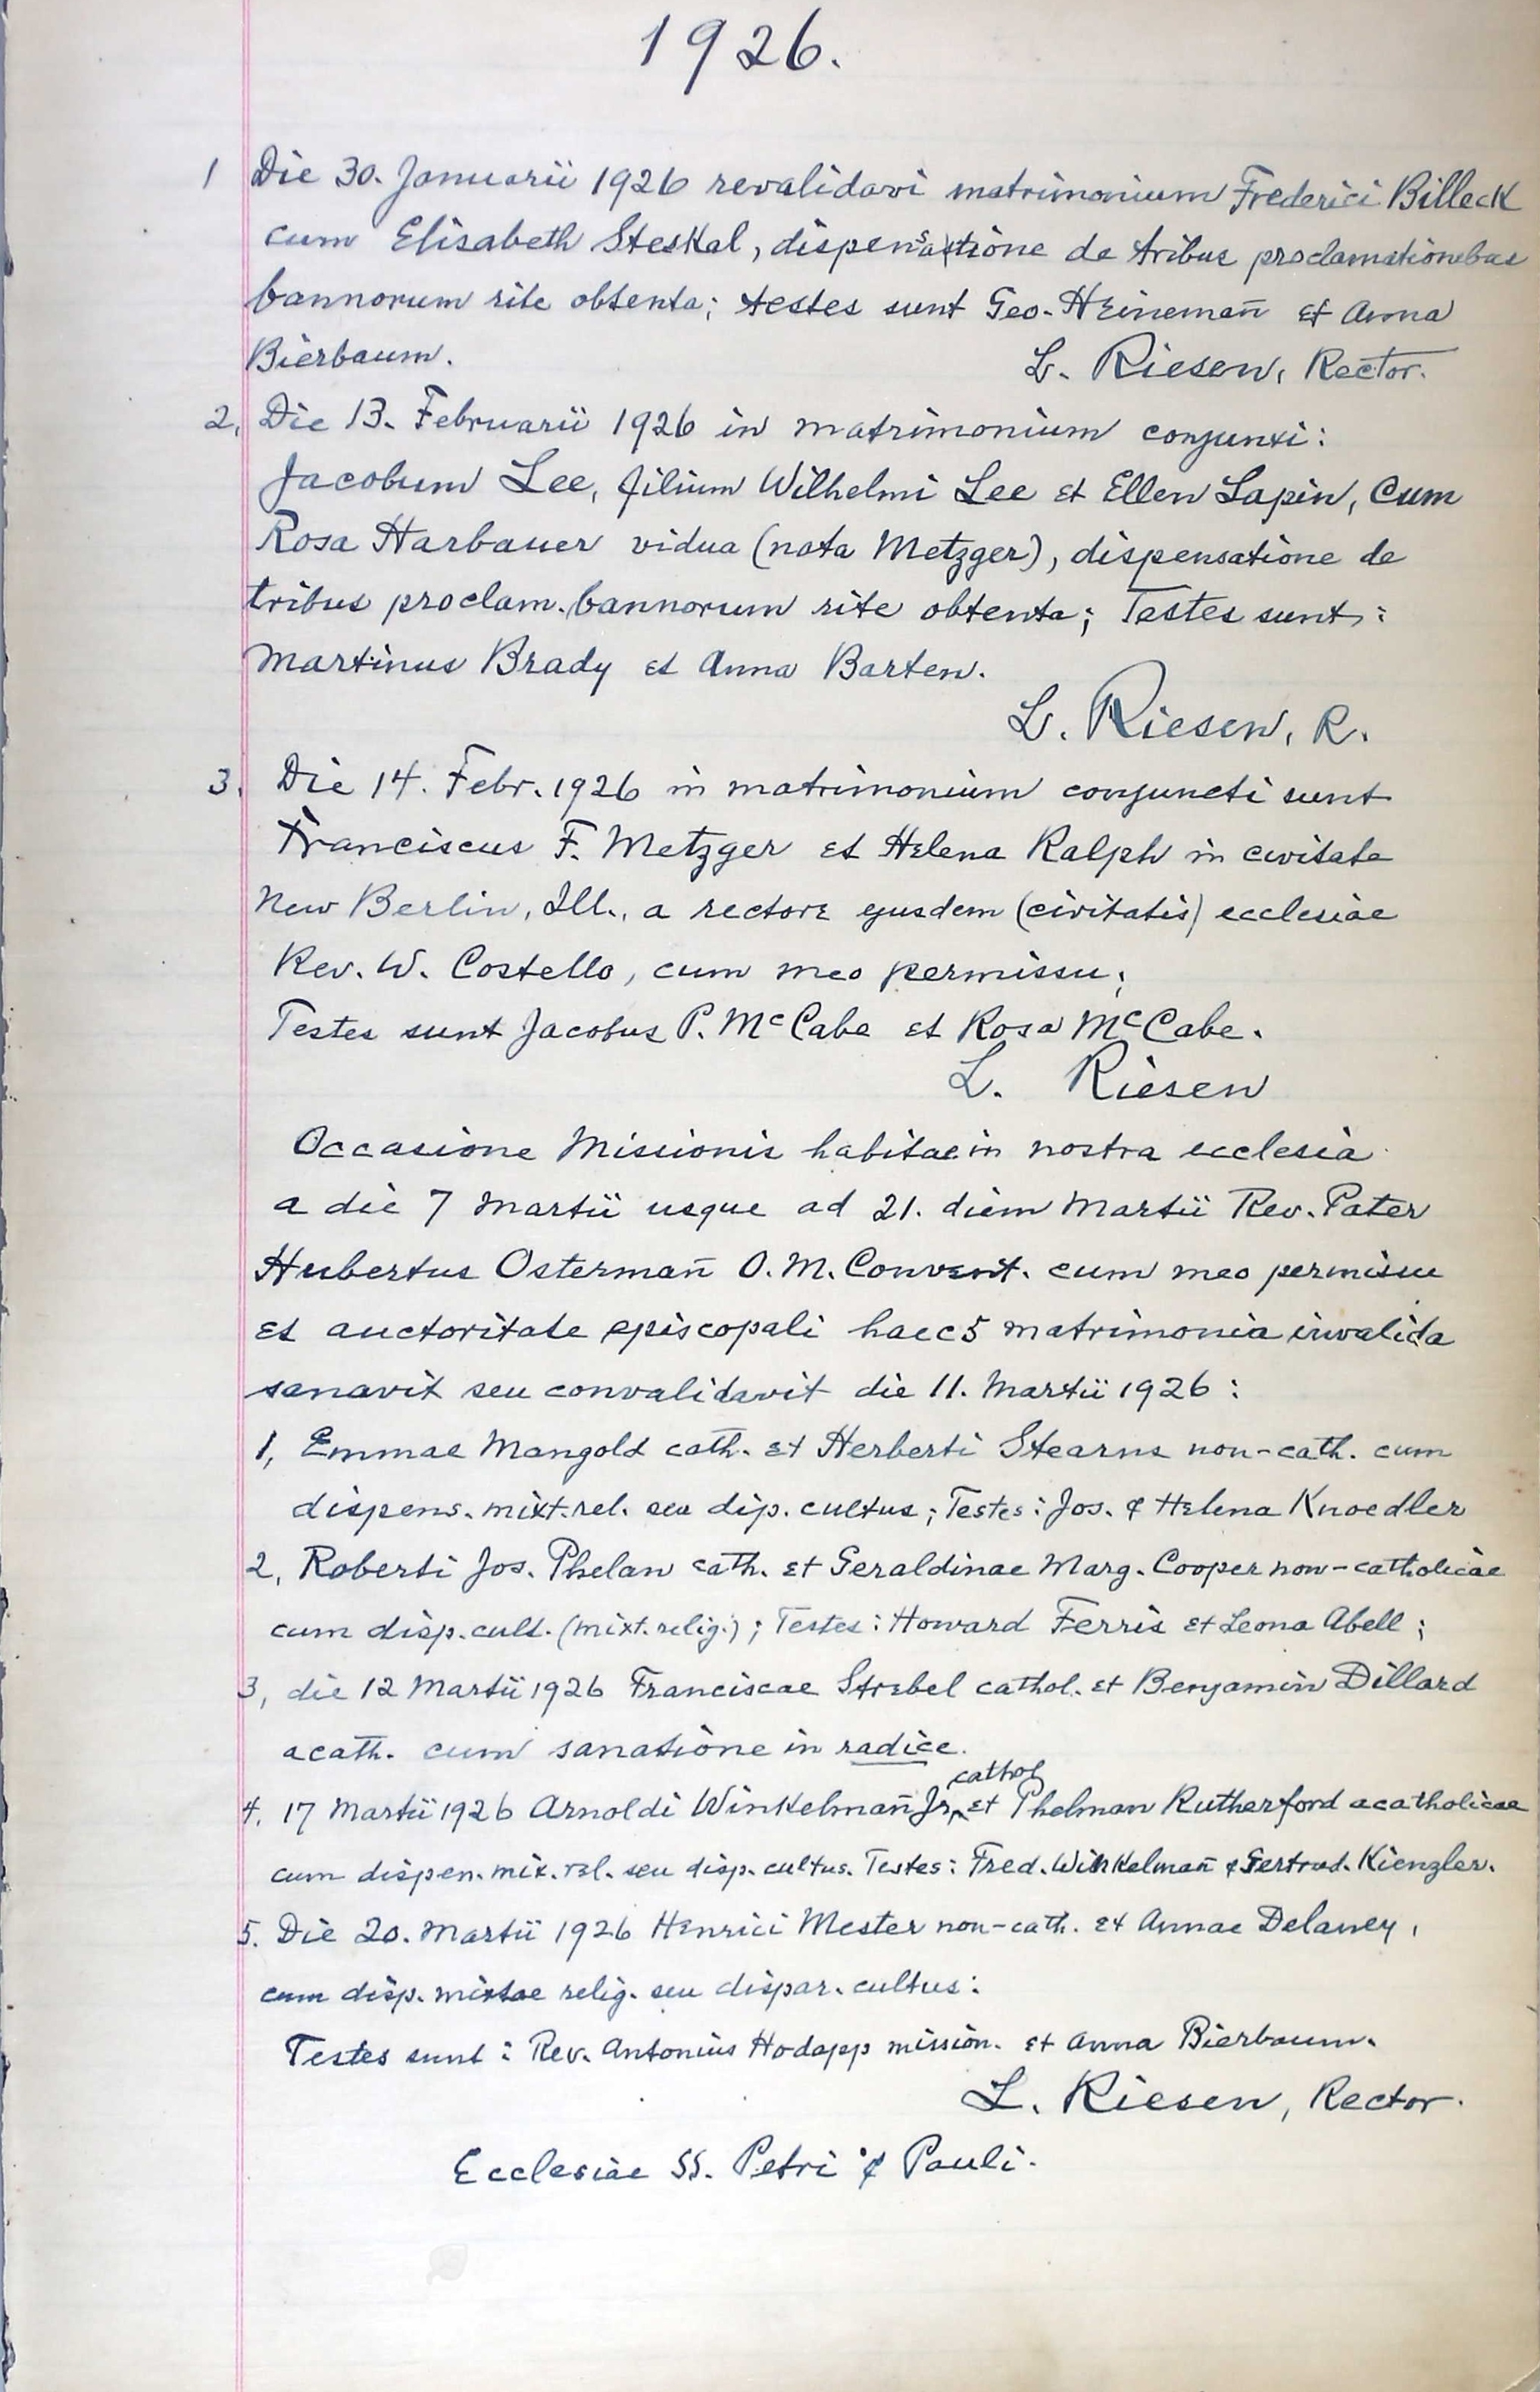 1926.
1 Die 30. Januarii 1926 revalidavi matrimonium Frederici Billeck
cum Elisabeth Steskal, dispensatione de tribus proclamationebus
bannorum rite obtenta; testes sunt Geo. Heineman̄ et Anna
Bierbaum. L. Riesen, Rector.
2, Die 13. Februarii 1926 in matrimonium conjunxi:
Jacobum Lee, filium Wilhelmi Lee et Ellen Lapin, cum
Rosa Harbauer vidua (nata Metzger), dispensatione de
tribus proclam. bannorum rite obtenta; Testes sunt:
Martinus Brady et Anna Barten.
L. Riesen, R.
3. Die 14. Febr. 1926 in matrimonium conjuncti sunt
Franciscus F. Metzger et Helena Ralph in civitate
New Berlin, Ill., a rectore ejusdem (civitatis) ecclesiae
Rev. W. Costello, cum meo permissu;
Testes sunt Jacobus P. McCabe et Rosa McCabe.
L. Riesen
Occasione Missionis habitae in nostra ecclesia
a die 7 Martii usque ad 21. diem Martii Rev. Pater
Hubertus Osterman̄ O. M. Convent. cum meo permissu
et auctoritate episcopali haec 5 matrimonia invalida
sanavit seu convalidavit die 11. Martii 1926:
1, Emmae Mangold cath. et Herberti Stearns non-cath. cum
dispens. mixt. rel. seu disp. cultus; Testes: Jos. & Helena Knoedler
2, Roberti Jos. Phelan cath. et Geraldinae Marg. Cooper non-catholicae
cum disp. cult. (mixt. relig.); Testes: Howard Ferris et Leona Abell;
3, die 12 Martii 1926 Franciscae Strebel cathol. et Benjamin Dillard
acath. cum sanatione in radice.
4. 17 Martii 1926 Arnoldi Winkelman̄ Jr. cathol et Thelman Rutherford acatholicae
cum dispen. mix. rel. seu disp. cultus. Testes: Fred. Winkelman̄ & Gertrud. Kienzler.
5. Die 20. Martii 1926 Henrici Mester non-cath. et Annae Delaney,
cum disp. mixtae relig. seu dispar. cultus:
Testes sunt: Rev. Antonius Hodapp mission. et Anna Bierbaum.
L. Riesen, Rector.
Ecclesiae SS. Petri & Pauli.